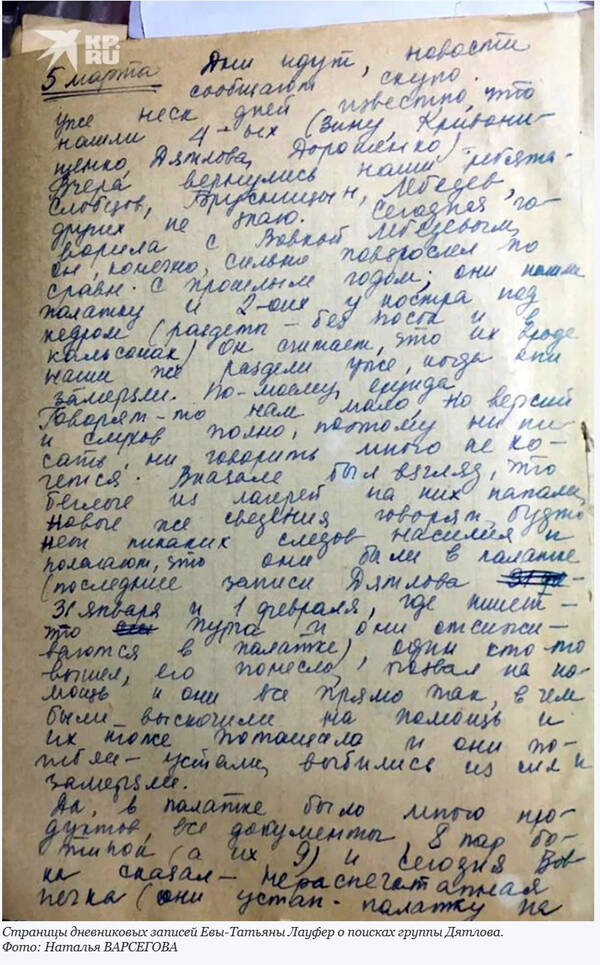 KP.RU
5 марта Дни идут, новости
сообщают скупо.
Уже неск дней известно, что
нашли 4-ых (Зину, Кривони-
щенко, Дятлова, Дорошенко).
Вчера вернулись наши ребята-
Слобцов, Брусницын, Лебедев,
других не знаю. Сегодня го-
ворила с Вовкой Лебедевым,
он, конечно, сильно повзрослел по
сравн. с прошлым годом; они нашли
палатку и 2-оих у костра под
кедром (раздеты - без носок и в
кальсонах) Он считает, что их вроде
наши же раздели уже, когда они
замерзли. По-моему, ерунда
Говорят-то нам мало, но версий
и слухов полно, поэтому ни пи-
сать, ни говорить много не хо-
чется. Вначале был взгляд, что
беглые из лагерей на них напали,
новые же сведения говорят, будто
нет никаких следов насилия и
полагают, что они были в палатке
(последние записи Дятлова
31 января и 1 февраля, где пишет-
что пурга и они отсижи-
ваются в палатке) один кто-то
вышел, его понесло, позвал на по-
мощь и они все прямо так, в чем
были - выскочили на помощь и
их тоже потащило и они по-
гибли - устали, выбились из сил и
замерзли.
Да, в палатке было много про-
дуктов, все документы, 8 пар бо-
тинок (а их 9) и сегодня Вов
ка сказал - нераспечатанная
печка (они устан. палатку на
Страницы дневниковых записей Евы-Татьяны Лауфер о поисках группы Дятлова.
Фото: Наталья ВАРСЕГОВА